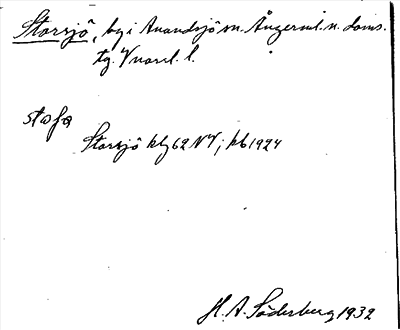 Storsjö, by i Anundsjö sn. Ångerml. n. doms.
tg. Vnorrl. l.
støfa
Storsjö kbg 62 NV; kb 1924
H. A. Söderberg 1932